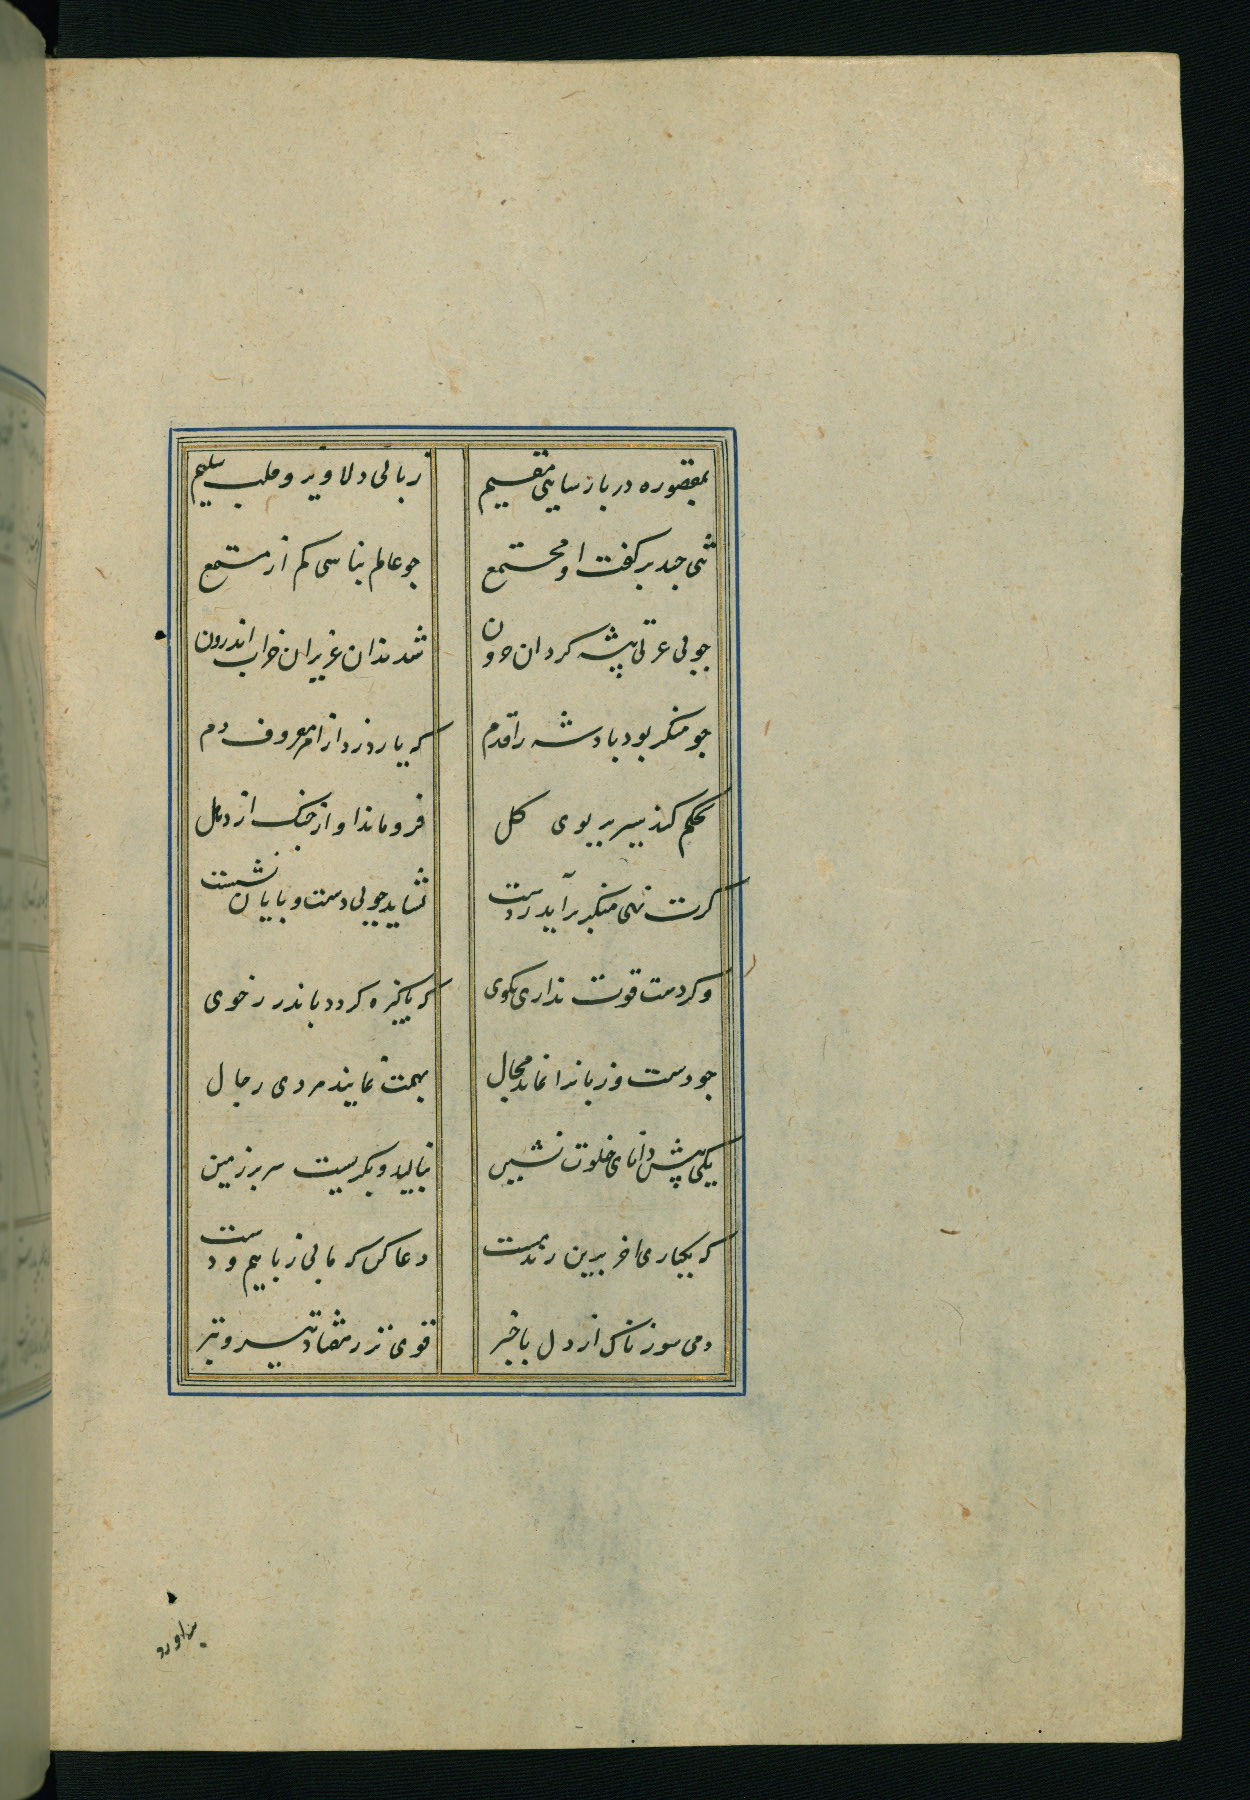 بمقصوره در بارسایی مقیم    زبانی دلاویز و قلب سلیم
تنی جند بر کفت او مجتمع    جو عالم نباسی کم از مستمع
جو بی عزتی پیشه کرد ان حرون    شدند ان عزیزان خراب اندرون
جو منکر بود بادشه را قدم    که یارد زد از امر معروف دم
تحکم کند سیر بر بوی کل    فرو ماند اواز جنک از دهل
کرت نهی منکر برآید ز دست    نشاید جو بی دست و بایان نشست
وکر دست قوت نداری بکوی    که باکیزه کردد باندرز خوی
جو دست و زبانرا نماند مجال    بهمت نمایند مردی رجال
یکی پیش دانای خلوت نشین    بنالید و بکریست سر بر زمین
که یکباری اخر برین رند مست    دعا کن که ما بی زبانیم و دست
دمی سوزناک از دل باخبر    قوی تر ز هفتاد تیر و تبر
براورد